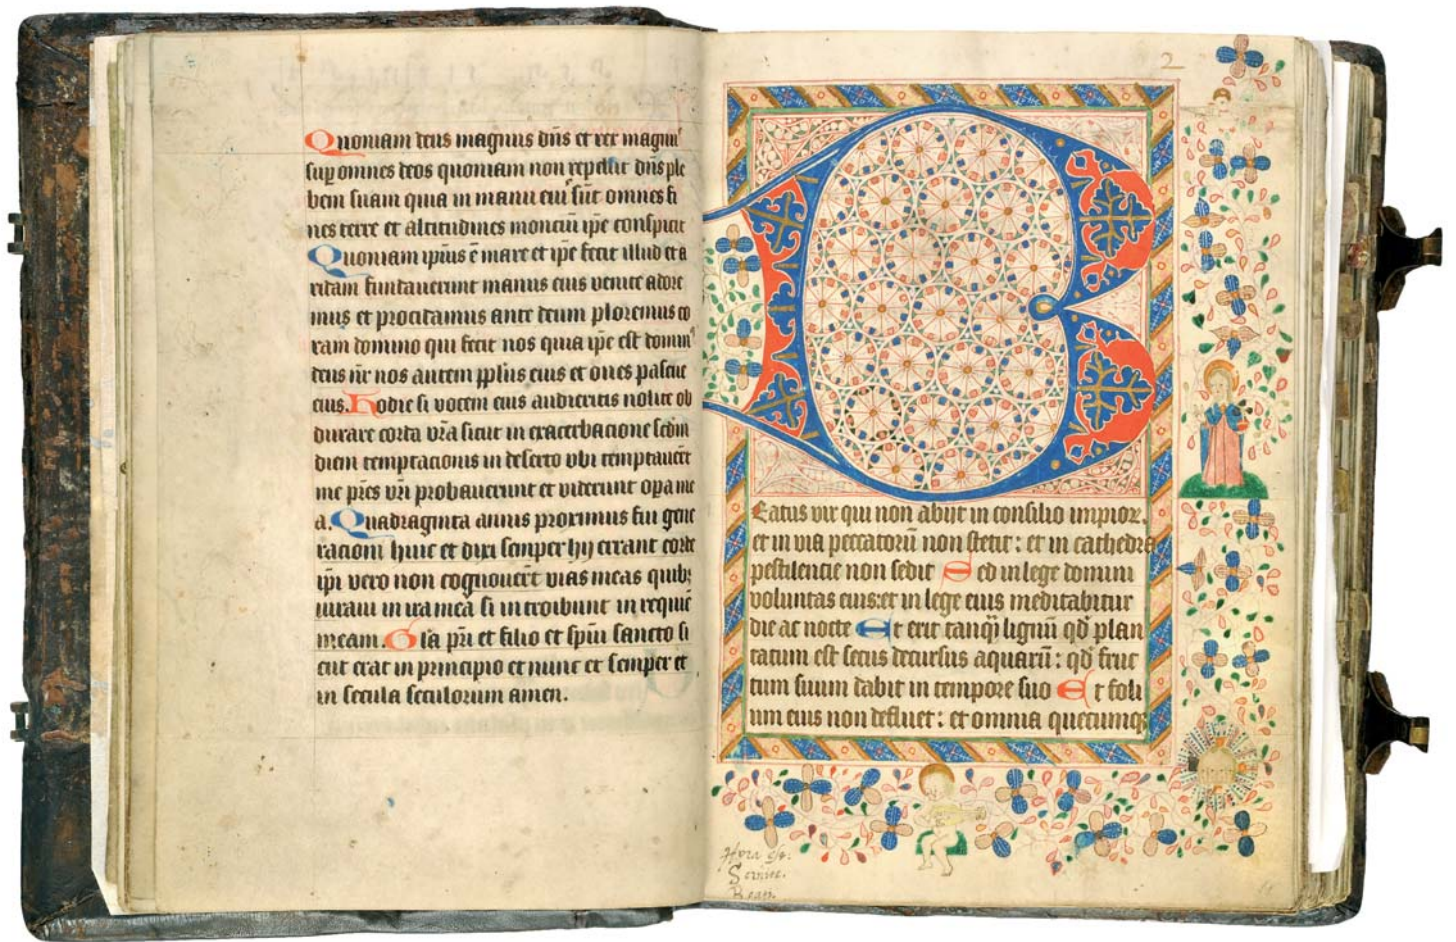 Quoniam deus magnus dn̄s et rex magnus
sup̱ omnes deos quoniam non repellit dn̄s ple
bem suam quia in manu eiꝰ sūt omnes fi
nes terre et altitudines monciū ip̄e conspicit
Quoniam ip̄ius ē mare et ip̄e fecit illud et a
ridam fundauerunt manus eius venite adore
mus et procidamus ante deum ploremus co
ram domino qui fecit nos quia ip̄e est dominꝰ
deus nr̄ nos autem pp̄lus eius et oues pascue
eius. Hodie si vocem eius audieritis nolite ob
durare corda vr̄a sicut in exacerbacione scdm̄
diem temptacionis in deserto vbi temptauert̄
me pr̄es vr̄i probauerunt et viderunt op̱a me
a. Quadraginta annis proximus fui gene
racioni huic et dixi semper hij errant corde
ip̄i vero non cognouert̄ vias meas quibꝫ
iuraui in ira mea si introibunt in requiē
meam. Gl̄a pr̄i et filio et sp̄ui sancto si
cut erat in principio et nunc et semper et
in secula seculorum amen.
2
Beatus vir qui non abijt in consilio impioꝝ.
et in via peccatorū non stetit : et in cathedra
pestilencie non sedit Sed in lege domini
voluntas eius: et in lege eius meditabitur
die ac nocte Et erit tanq̄ lignū qd̄ plan
tatum est secus decursus aquarū : qd̄ fruc
tum suum dabit in tempore suo Et foli
um eius non defluet : et omnia quecumqꝫ
Hora